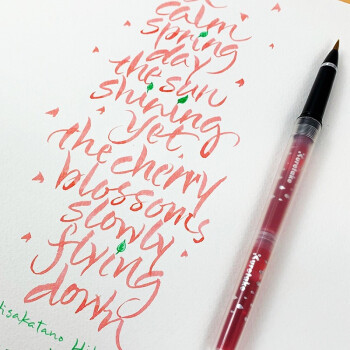 calm
spring
day
the sun
shining
yet
the cherry
blossoms
slowly
flying
down
isakatano Hi
Kuretake
Kuretake